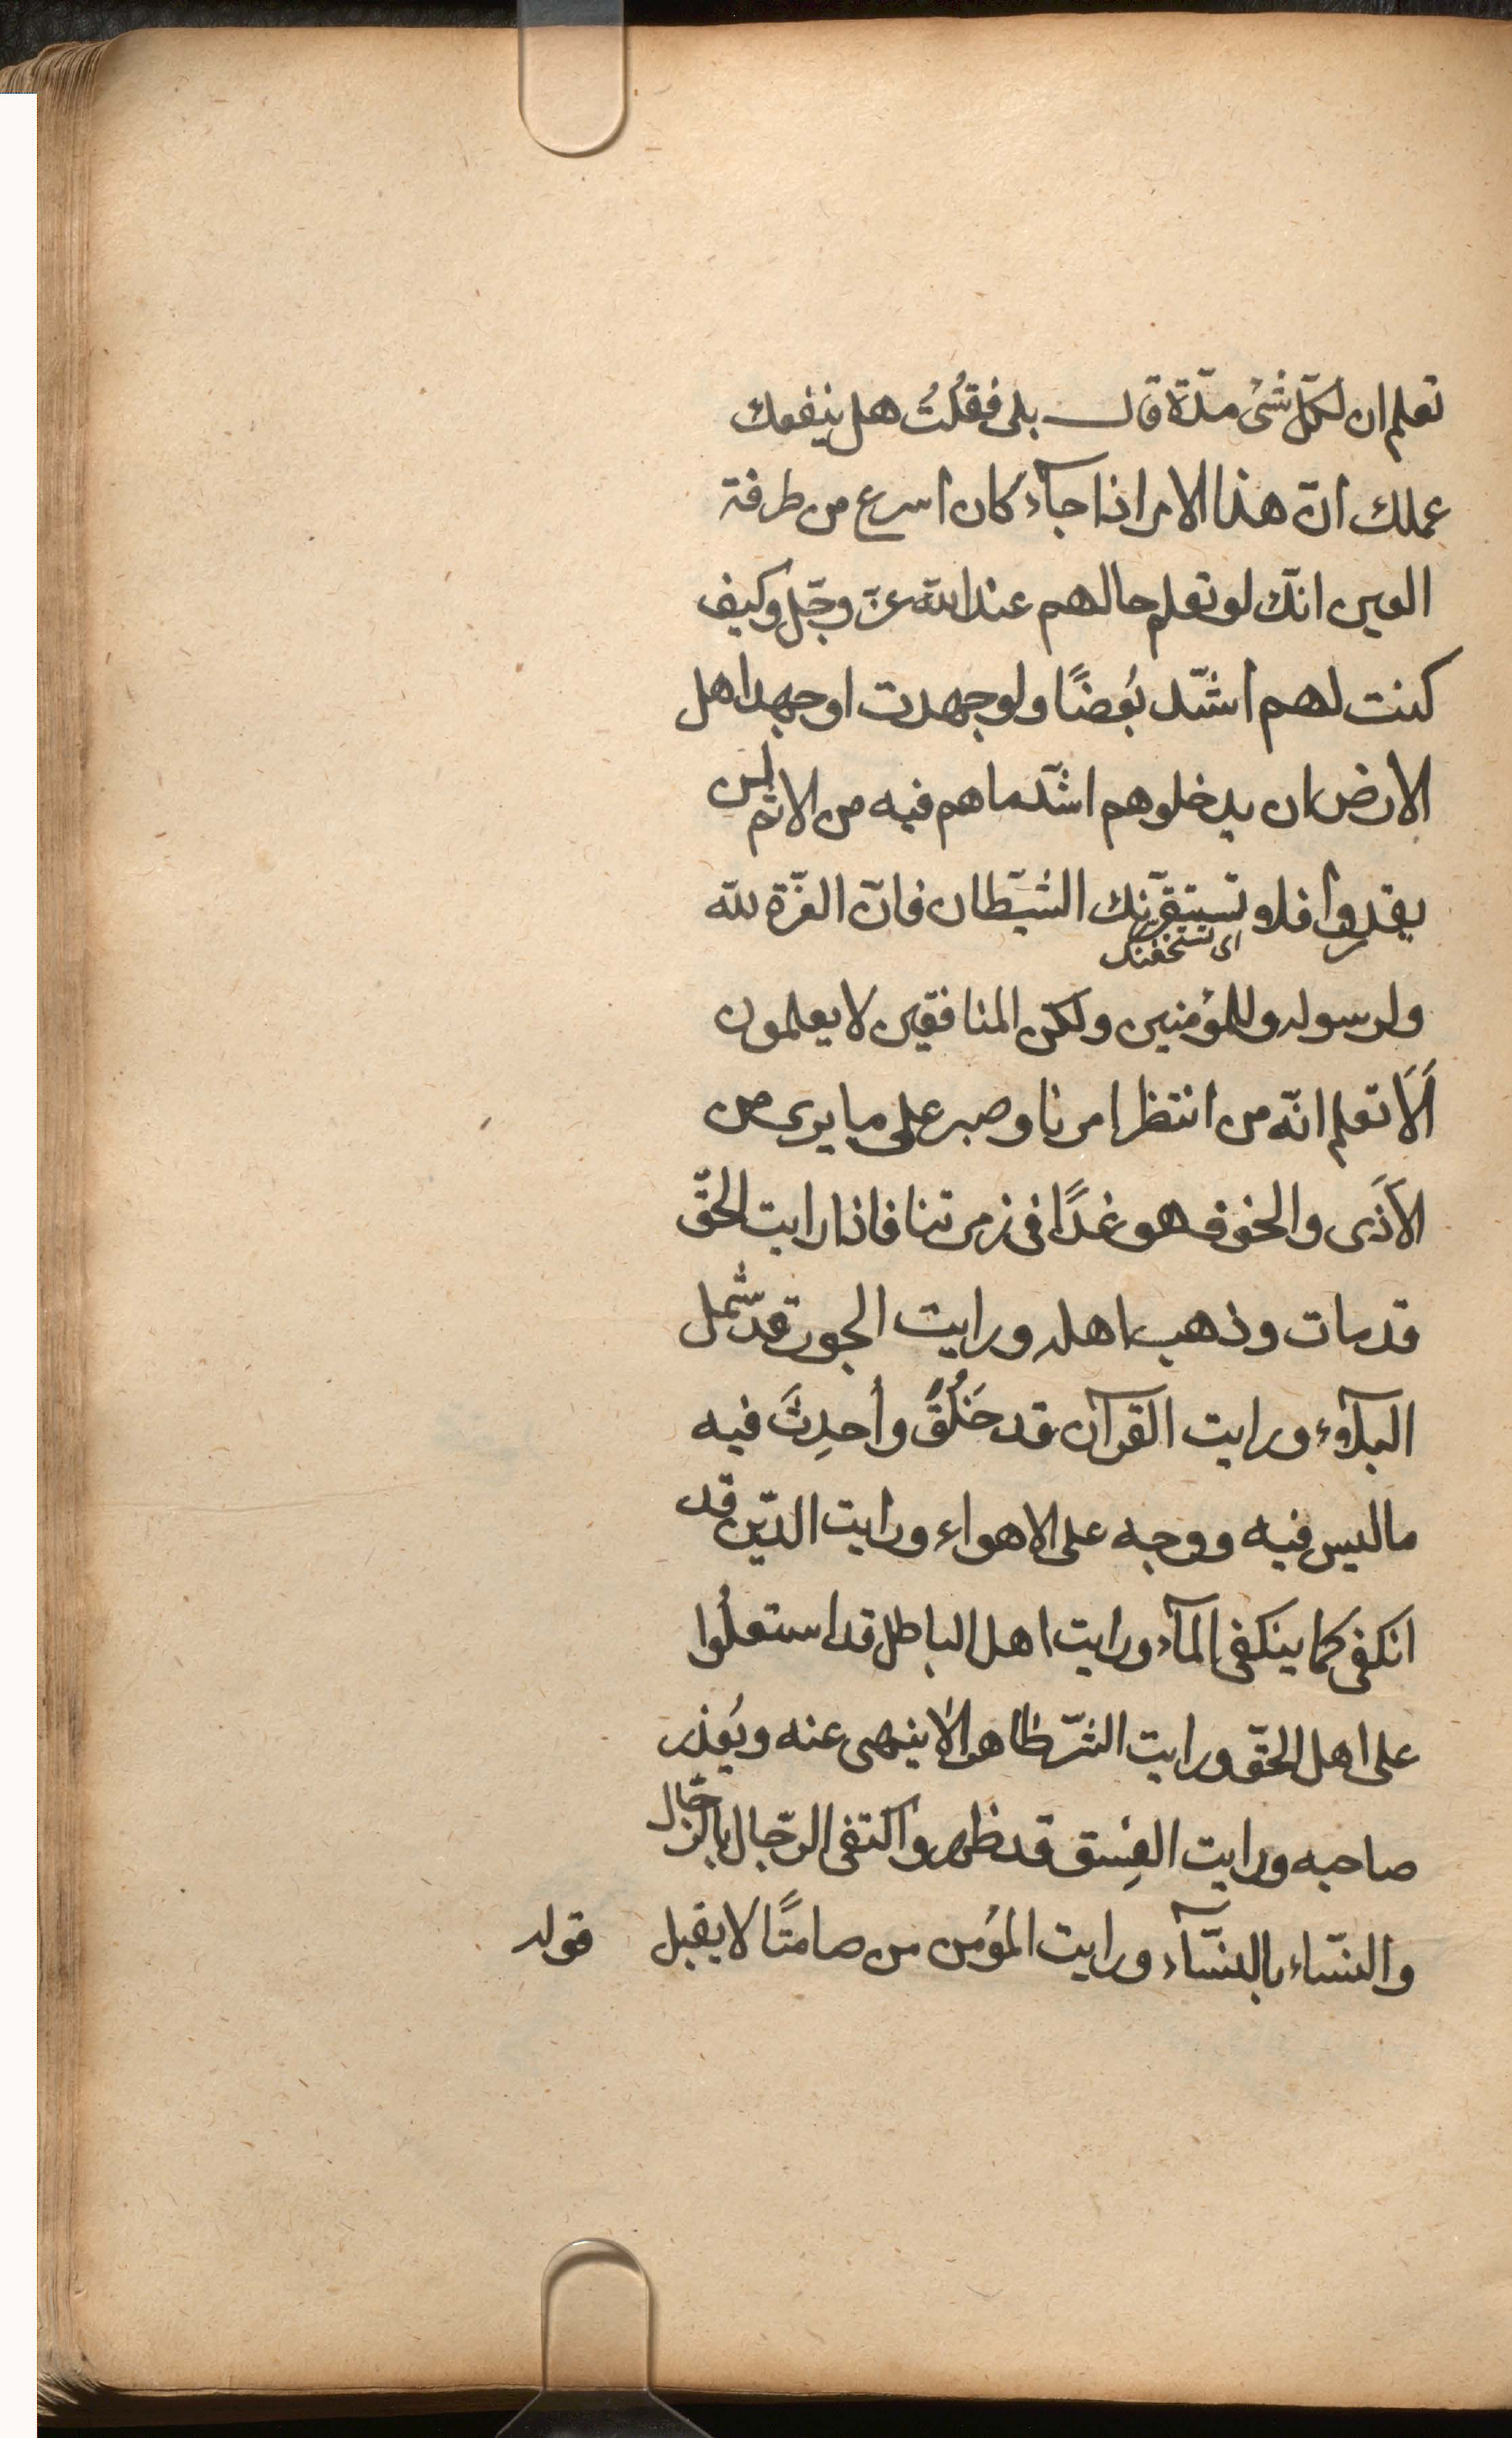 تعلم ان لكلّ شئ مدّة قال بلى فقُلتُ هل ينفعك
عملك انّ هذا الامر اذا جآء كان اسرع من طرفة
العين انّك لو تعلم حالهم عند اللّه عزّ وجّل وكيف
كنت لهم اشّد بُغضًا ولو جهدت او جهد اهل
الارض ان يدخلوهم اشّد ما هم فيه من الاثم لم
يقدروا فلا تستفزّنك الشّيطان فانّ العزّة للّه
اى تستخفنك
ولرسوله وللمؤمنين ولكنّ المنافقين لا يعلمون
اَلَا تعلم انّه من انتظر امرنا وصبر على ما يرى من
الاَذَى والخوف هو غدًا فى زمرتنا فاذا رايت الحقّ
قد مات وذهب اهله ورايت الجور قد شمل
البلاء ورايت القرآن قد خَلُقَ واُحدِثَ فيه
ما ليس فيه ووجه على الاهواء ورايت الدّين قد
انكفى كما ينكفى المآء ورايت اهل الباطل قد استعلُوا
على اهل الحقّ ورايت الشرّ ظاهرا لا ينهى عنه ويُعذر
صاحبه ورايت الفِسق قد ظهر واكتفى الرّجال بالرّجال
والنسّاء بالنسّآء ورايت المؤمن من صامتًا لا يقبل
قوله